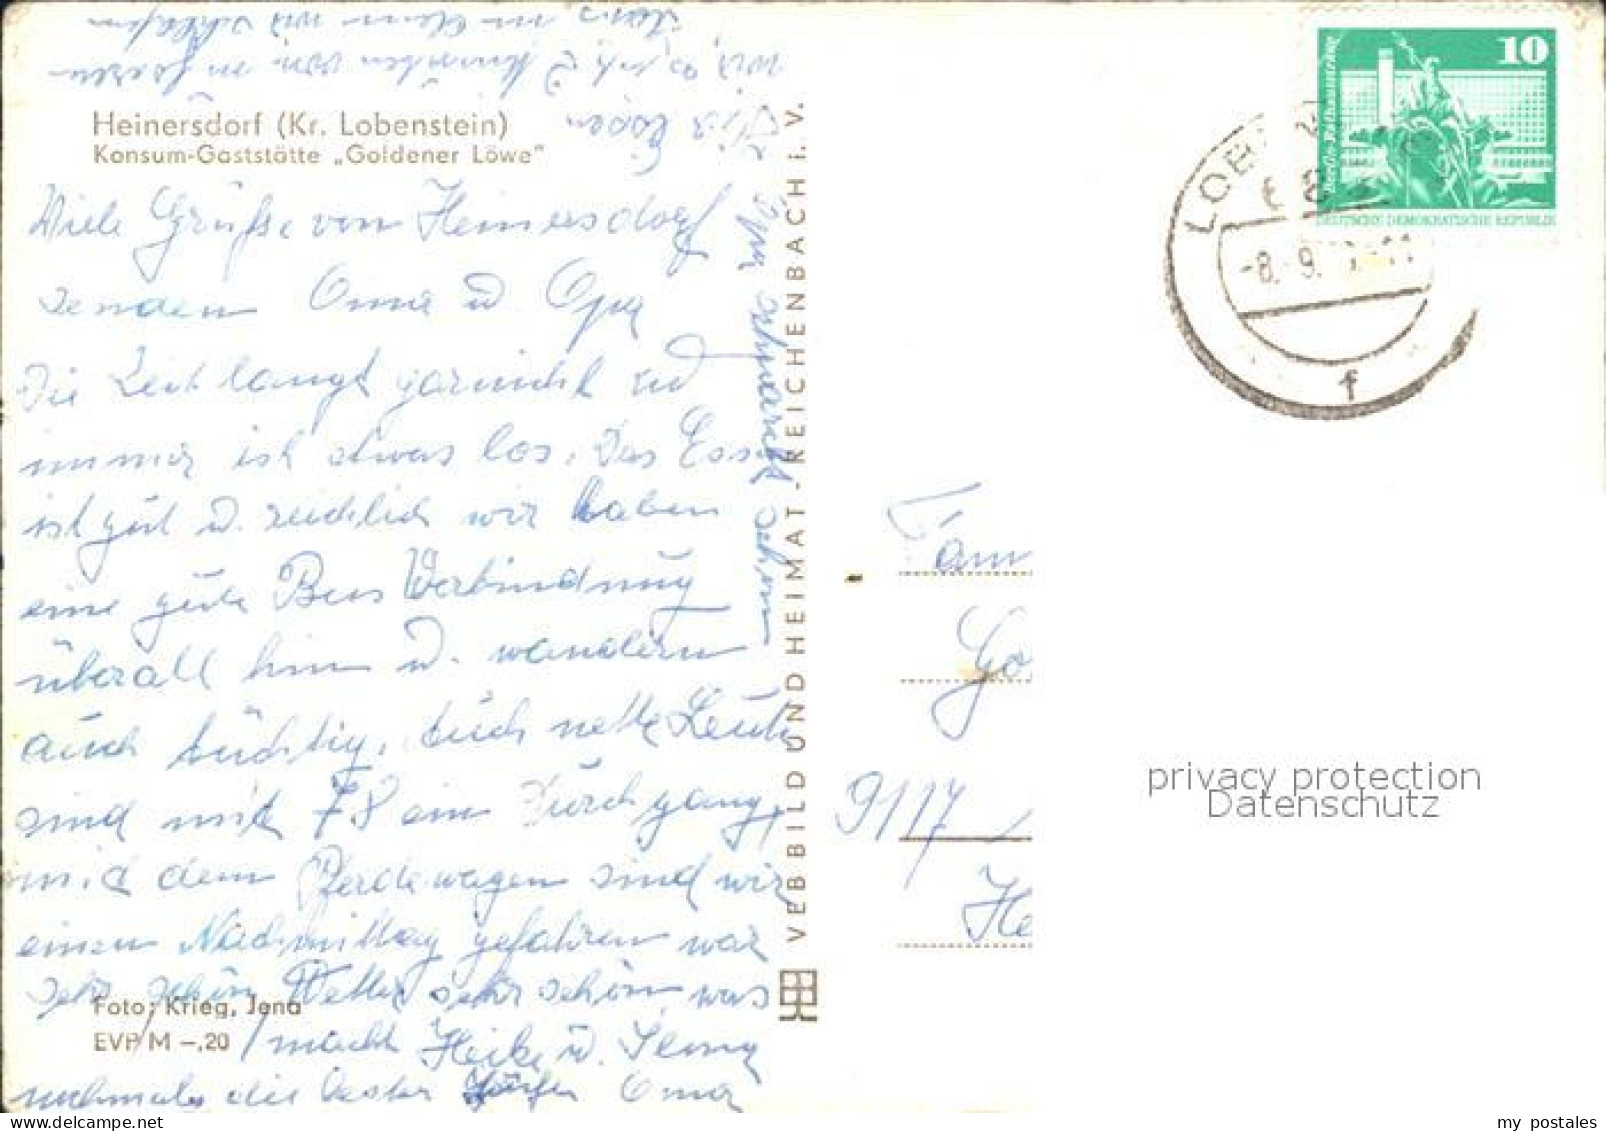 Heinersdorf (Kr. Lobenstein)
Konsum-Gaststätte „Goldener Löwe"
Viele Grüße von Heinersdorf
senden Oma u. Opa
Die Zeit langt garnicht zu
immer ist etwas los. Das Essen
ist gut u. reichlich wir haben
eine gute Bus Verbindung
überall hin u. wandern
auch tüchtig. Auch nette Leute
sind mit 78 ein Durchgang,
mit dem Pferdewagen sind wir
einen Nachmittag gefahren war
sehr schön Wetter sehr schön was
macht Heike u.
nochmals die besten Grüße Oma
Foto: Krieg, Jena
EVP M -,20
VEB BILD UND HEIMAT - REICHENBACH i. V.
10
Berlin, Rathausstraße
DEUTSCHE DEMOKRATISCHE REPUBLIK
-8.-9.
f
Fam
Go
9117
He
privacy protection
Datenschutz
my postales